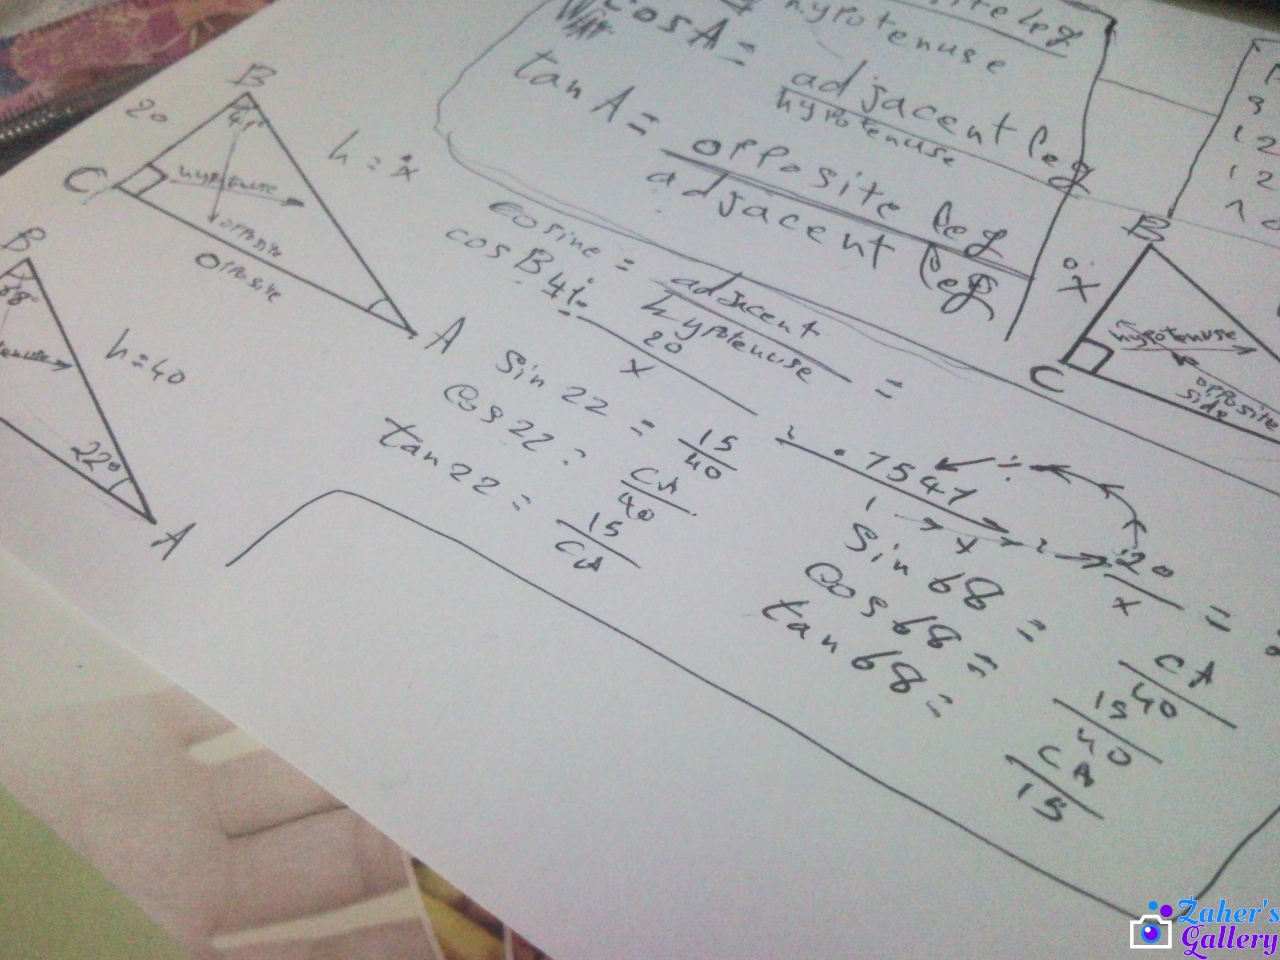 hypotenuse
cos A = adjacent leg
hypotenuse
tan A = opposite leg
adjacent leg
B
20
41°
C
hypotenuse
h = x
opposite
opposite
A
cosine = adjacent =
hypotenuse
cos B 41
20
x
B
68°
h = 40
22°
A
sin 22 = 15
40
cos 22 = CA
40
tan 22 = 15
CA
.7547 ÷
x
20 =
x
sin 68 = CA
40
cos 68 = 15
40
tan 68 = CA
15
B
x
hypotenuse
C
opposite
side
12
12
Zaher's
Gallery